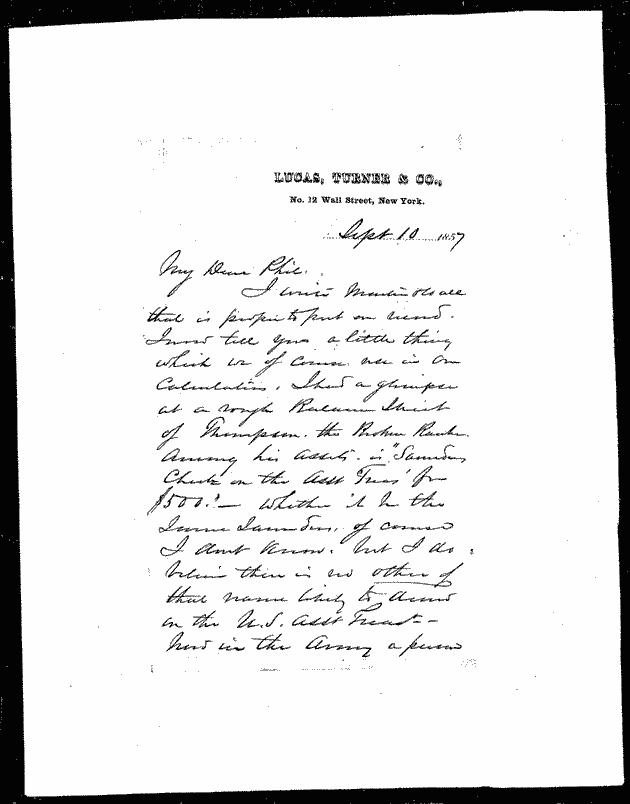 LUCAS, TURNER & CO.,
No. 12 Wall Street, New York.
Sept 10 1857
My Dear Phil.
I write all
that is proper to put on record.
I now tell you a little thing
which we of course use in our
Calculations. I had a glimpse
at a rough Balance Sheet
of Thompson. the Broken Banker.
Among his assets. is "Saunders
Check on the Asst Treas' for
$500."— Whether it be the
Same Saunders, of course
I dont know. but I do
believe there is no other of
that name likely to draw
on the U.S. Asst Treast—
Now in the Army a person